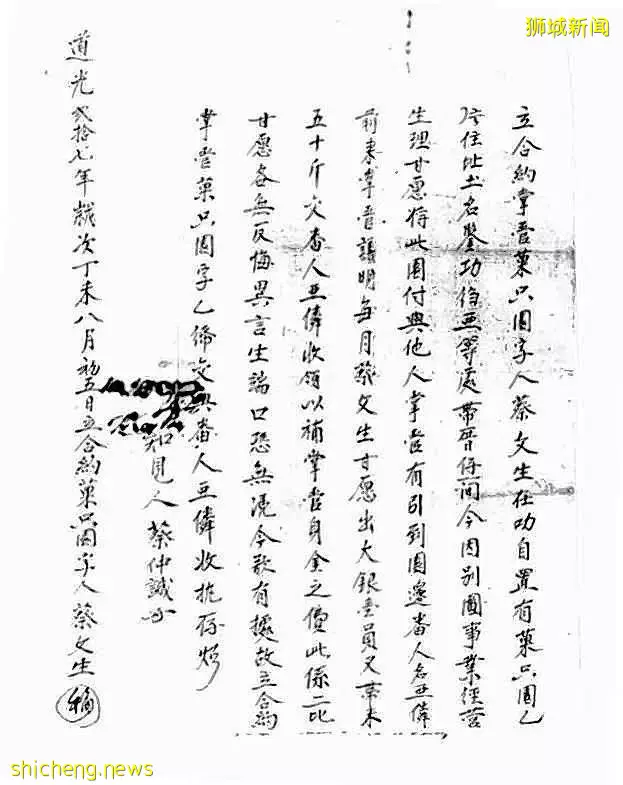 狮城新闻
立合約掌管菓只園字人蔡文生在叻自置有菓只園乙
住址土名 功 亜等處帶 間今因別圖事業經营
生理甘愿将此園付與他人掌管有引到園邊番人名亜僯
前來掌管議明每月蔡文生甘愿出大銀 員又帶米
五十斤交番人亜僯收領以補掌管身金之價此係二比
甘愿各無反悔異言生端口恐無凭今欲有據故立合約
掌管菓只園字乙 交與番人亜僯收执存炤
知見人蔡仲誠
道光弍拾七年歲次丁未八月初五日立合約菓只園字人蔡文生
shicheng.news